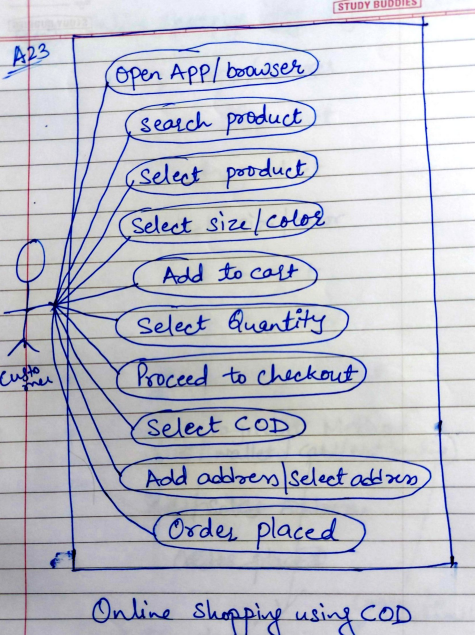 STUDY BUDDIES
A23
Open APP/browser
search product
Select product
Select size/color
Add to cart
Select Quantity
Proceed to checkout
Select COD
Add address/select address
Order placed
Custo
mer
Online shopping using COD